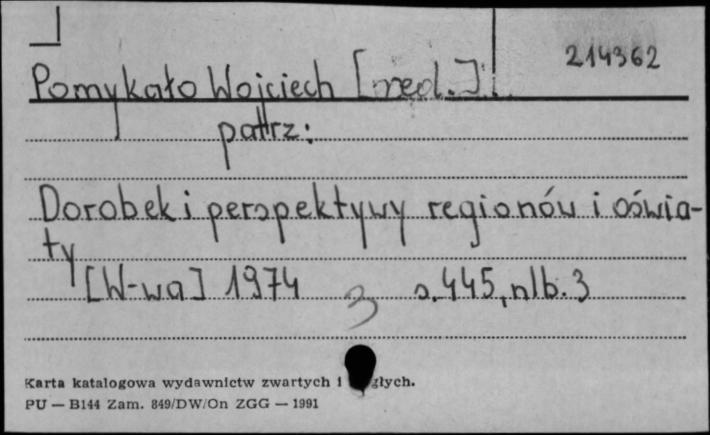 214362
Pomykało Wojciech [red.]
patrz:
Dorobek i perspektywy regionów i oświa-
ty
[W-wa] 1974 3 s.445, nlb.3
Karta katalogowa wydawnictw zwartych i głych.
PU — B144 Zam. 849/DW/On ZGG — 1991